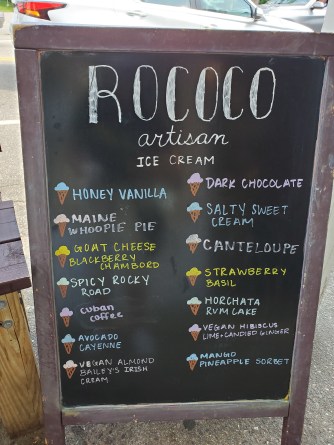 ROCOCO
artisan
ICE CREAM
HONEY VANILLA
MAINE
WHOOPIE PIE
GOAT CHEESE
BLACKBERRY
CHAMBORD
SPICY ROCKY
ROAD
CUBAN
COFFEE
AVOCADO
CAYENNE
VEGAN ALMOND
BAILEY'S IRISH
CREAM
DARK CHOCOLATE
SALTY SWEET
CREAM
CANTELOUPE
STRAWBERRY
BASIL
HORCHATA
RUM CAKE
VEGAN HIBISCUS
LIME + CANDIED GINGER
MANGO
PINEAPPLE SORBET